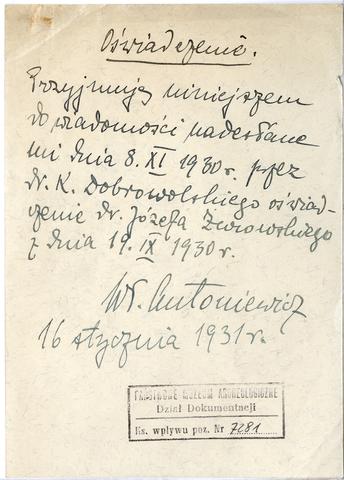 Oświadczenie.
Przyjmuję niniejszem
do wiadomości nadesłane
mi dnia 8. XI 1930 r. przez
dr. K. Dobrowolskiego oświad-
czenie dr. Józefa Żurowskiego
z dnia 19. IX 1930 r.
Wł. Antoniewicz
16 stycznia 1931 r.
PAŃSTWOWE MUZEUM ARCHEOLOGICZNE
Dział Dokumentacji
Ks. wpływu poz. Nr 7281